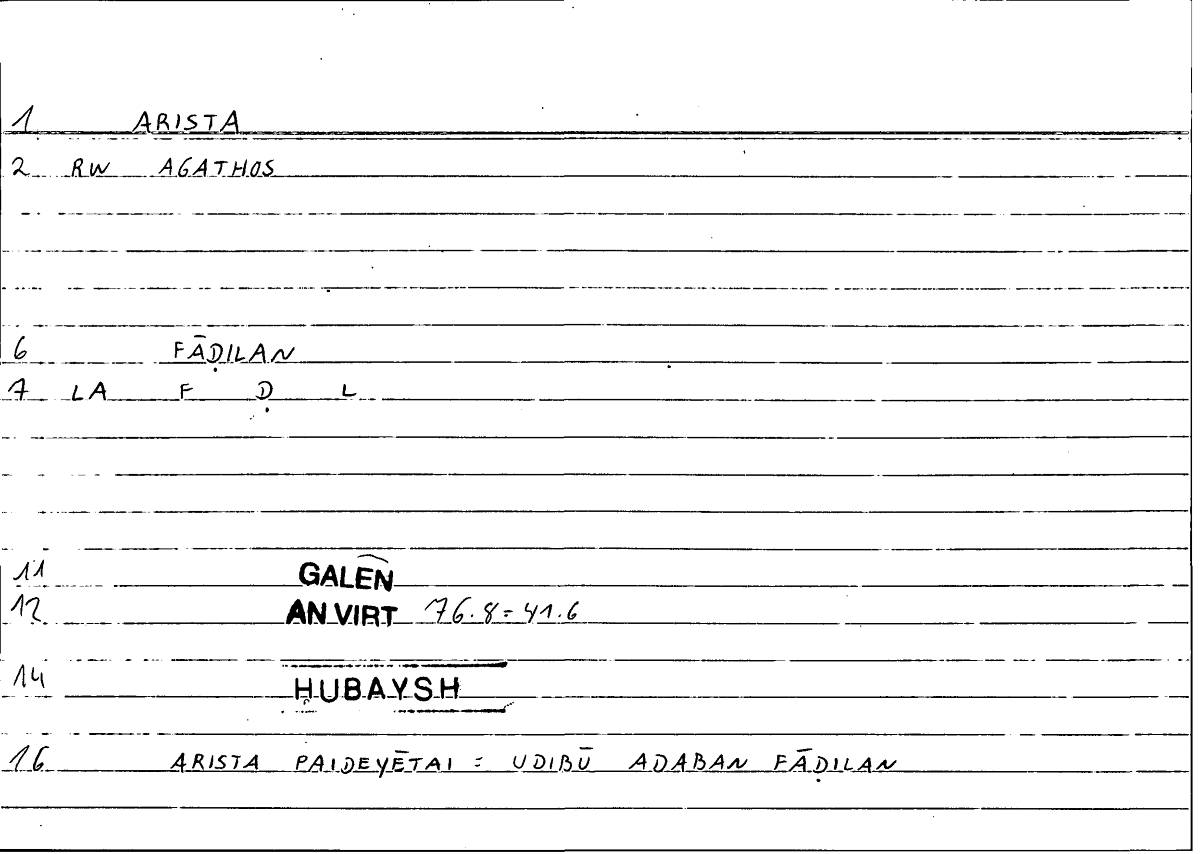 1 ARISTA
2 RW AGATHOS
6 FĀḌILAN
7 LA F Ḍ L
11 GALEN
12 AN VIRT 76.8=41.6
14 ḤUBAYSH
16 ARISTA PAIDEYĒTAI = UDIBŪ ADABAN FĀḌILAN